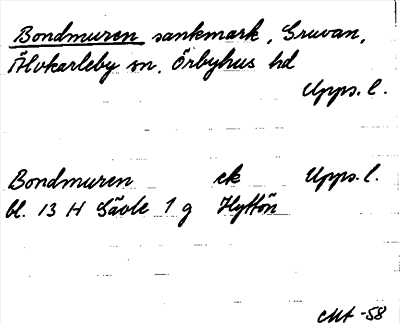 Bondmuren sankmark, Gruvan,
Älvkarleby sn, Örbyhus hd
Upps. l.
Bondmuren ek Upps. l.
bl. 13 H Gävle 1 g Hyttön
-58